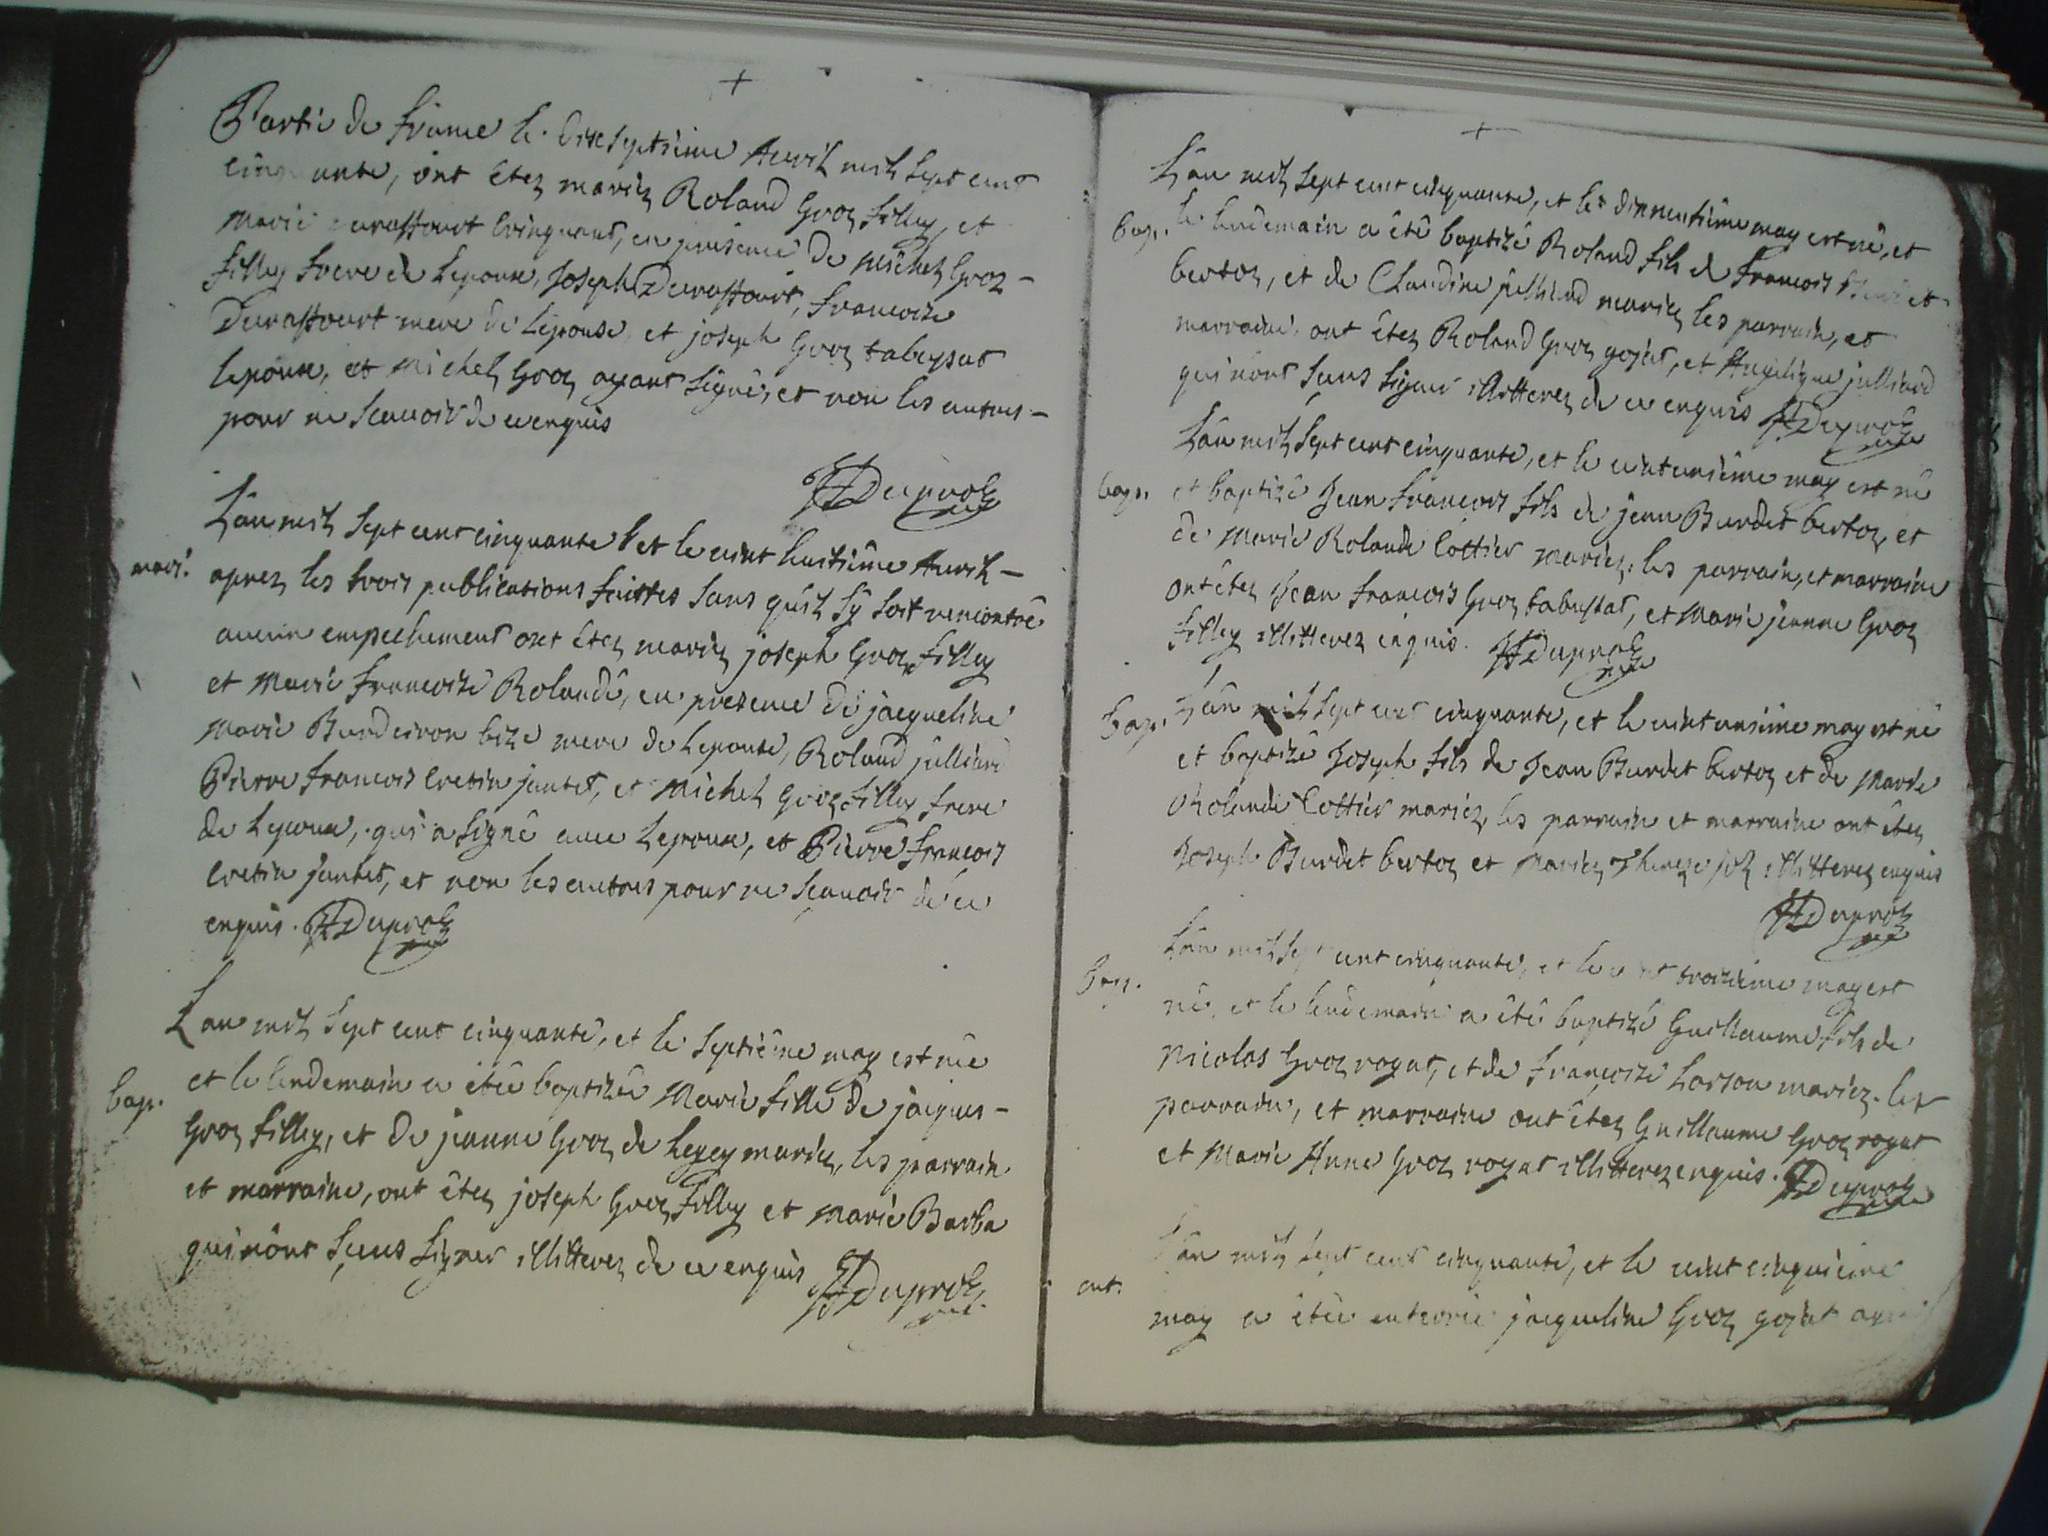 Partie de france le dixseptiéme Avril mil sept cent
cinquante, ont êtez mariez Roland Groz filley, et
Marie cringuand, en présence de Michel Groz -
filley frere de Lepoux, Joseph Durassourt, francoise
Durassourt mere de Lépouse, et joseph Groz tabussat
lepoux, et Michel Groz ayant signé, et non les autres -
pour ne scauoir de ce enquis
Duproz
L'an mil sept cent cinquante et le uint huitiéme Auril -
mari.
aprez les trois publications faittes sans qu'il sy soit rencontré
aucun empechement ont êtez mariez joseph Groz filley
et Marie francoise Rolande, en presence de jacqueline
Marie Burdeiron bize mere de Lepouse, Roland julliard
Pierre francois cretin jantet, et Michel Groz filley frere
de Lepoux, qui a signé auec Lepoux, et Pierre francois
cretin jantet, et non les autres pour ne scauoir de ce
enquis. Duproz
L'an mil sept cent cinquante, et le septiéme may est née
bap.
et le lendemain a étée baptizée Marie fille de jacques -
Groz filley, et de jeanne Groz de Legey mariez, les parrain
et marraine, ont êtez joseph Groz filley et Marie Barba
qui n'ont sceus signer illitterez de ce enquis Duproz
L'an mil sept cent cinquante, et le dixneutiéme may est né, et
bap.
le lendemain a été baptizé Roland fils de francois et
bertoz, et de Claudine julliard mariez les parrain, et
marraine, ont êtez Roland Groz gojat, et Angelique julliard
qui n'ont sceus signer illitterez de ce enquis Duproz
L'an mil sept cent cinquante, et le uint uniéme may est né
bap.
et baptizé Jean francois fils de jean Burdet bertoz, et
de Marie Rolande Cottier mariez, les parrain, et marraine
ont êtez Jean francois Groz tabussat, et Marie jeanne Groz
filley illitterez enquis. Duproz
L'an mil sept cent cinquante, et le uint uniéme may est né
bap.
et baptizé Joseph fils de Jean Burdet bertoz et de Marie
Rolande Cottier mariez, les parrain et marraine ont êtez
Joseph Burdet bertoz et illitterez enquis
Duproz
L'an mil sept cent cinquante, et le uint troiziéme may est
bap.
né, et le lendemain a été baptizé Guillaume fils de
Nicolas Groz royat, et de françoise Larson mariez. les
parrain, et marraine ont êtez Guillaume Groz royat
et Marie Anne Groz royat illitterez enquis. Duproz
L'an mil sept cent cinquante, et le uint cinquiéme
ent.
may a étée enterrée jacqueline Groz gojat